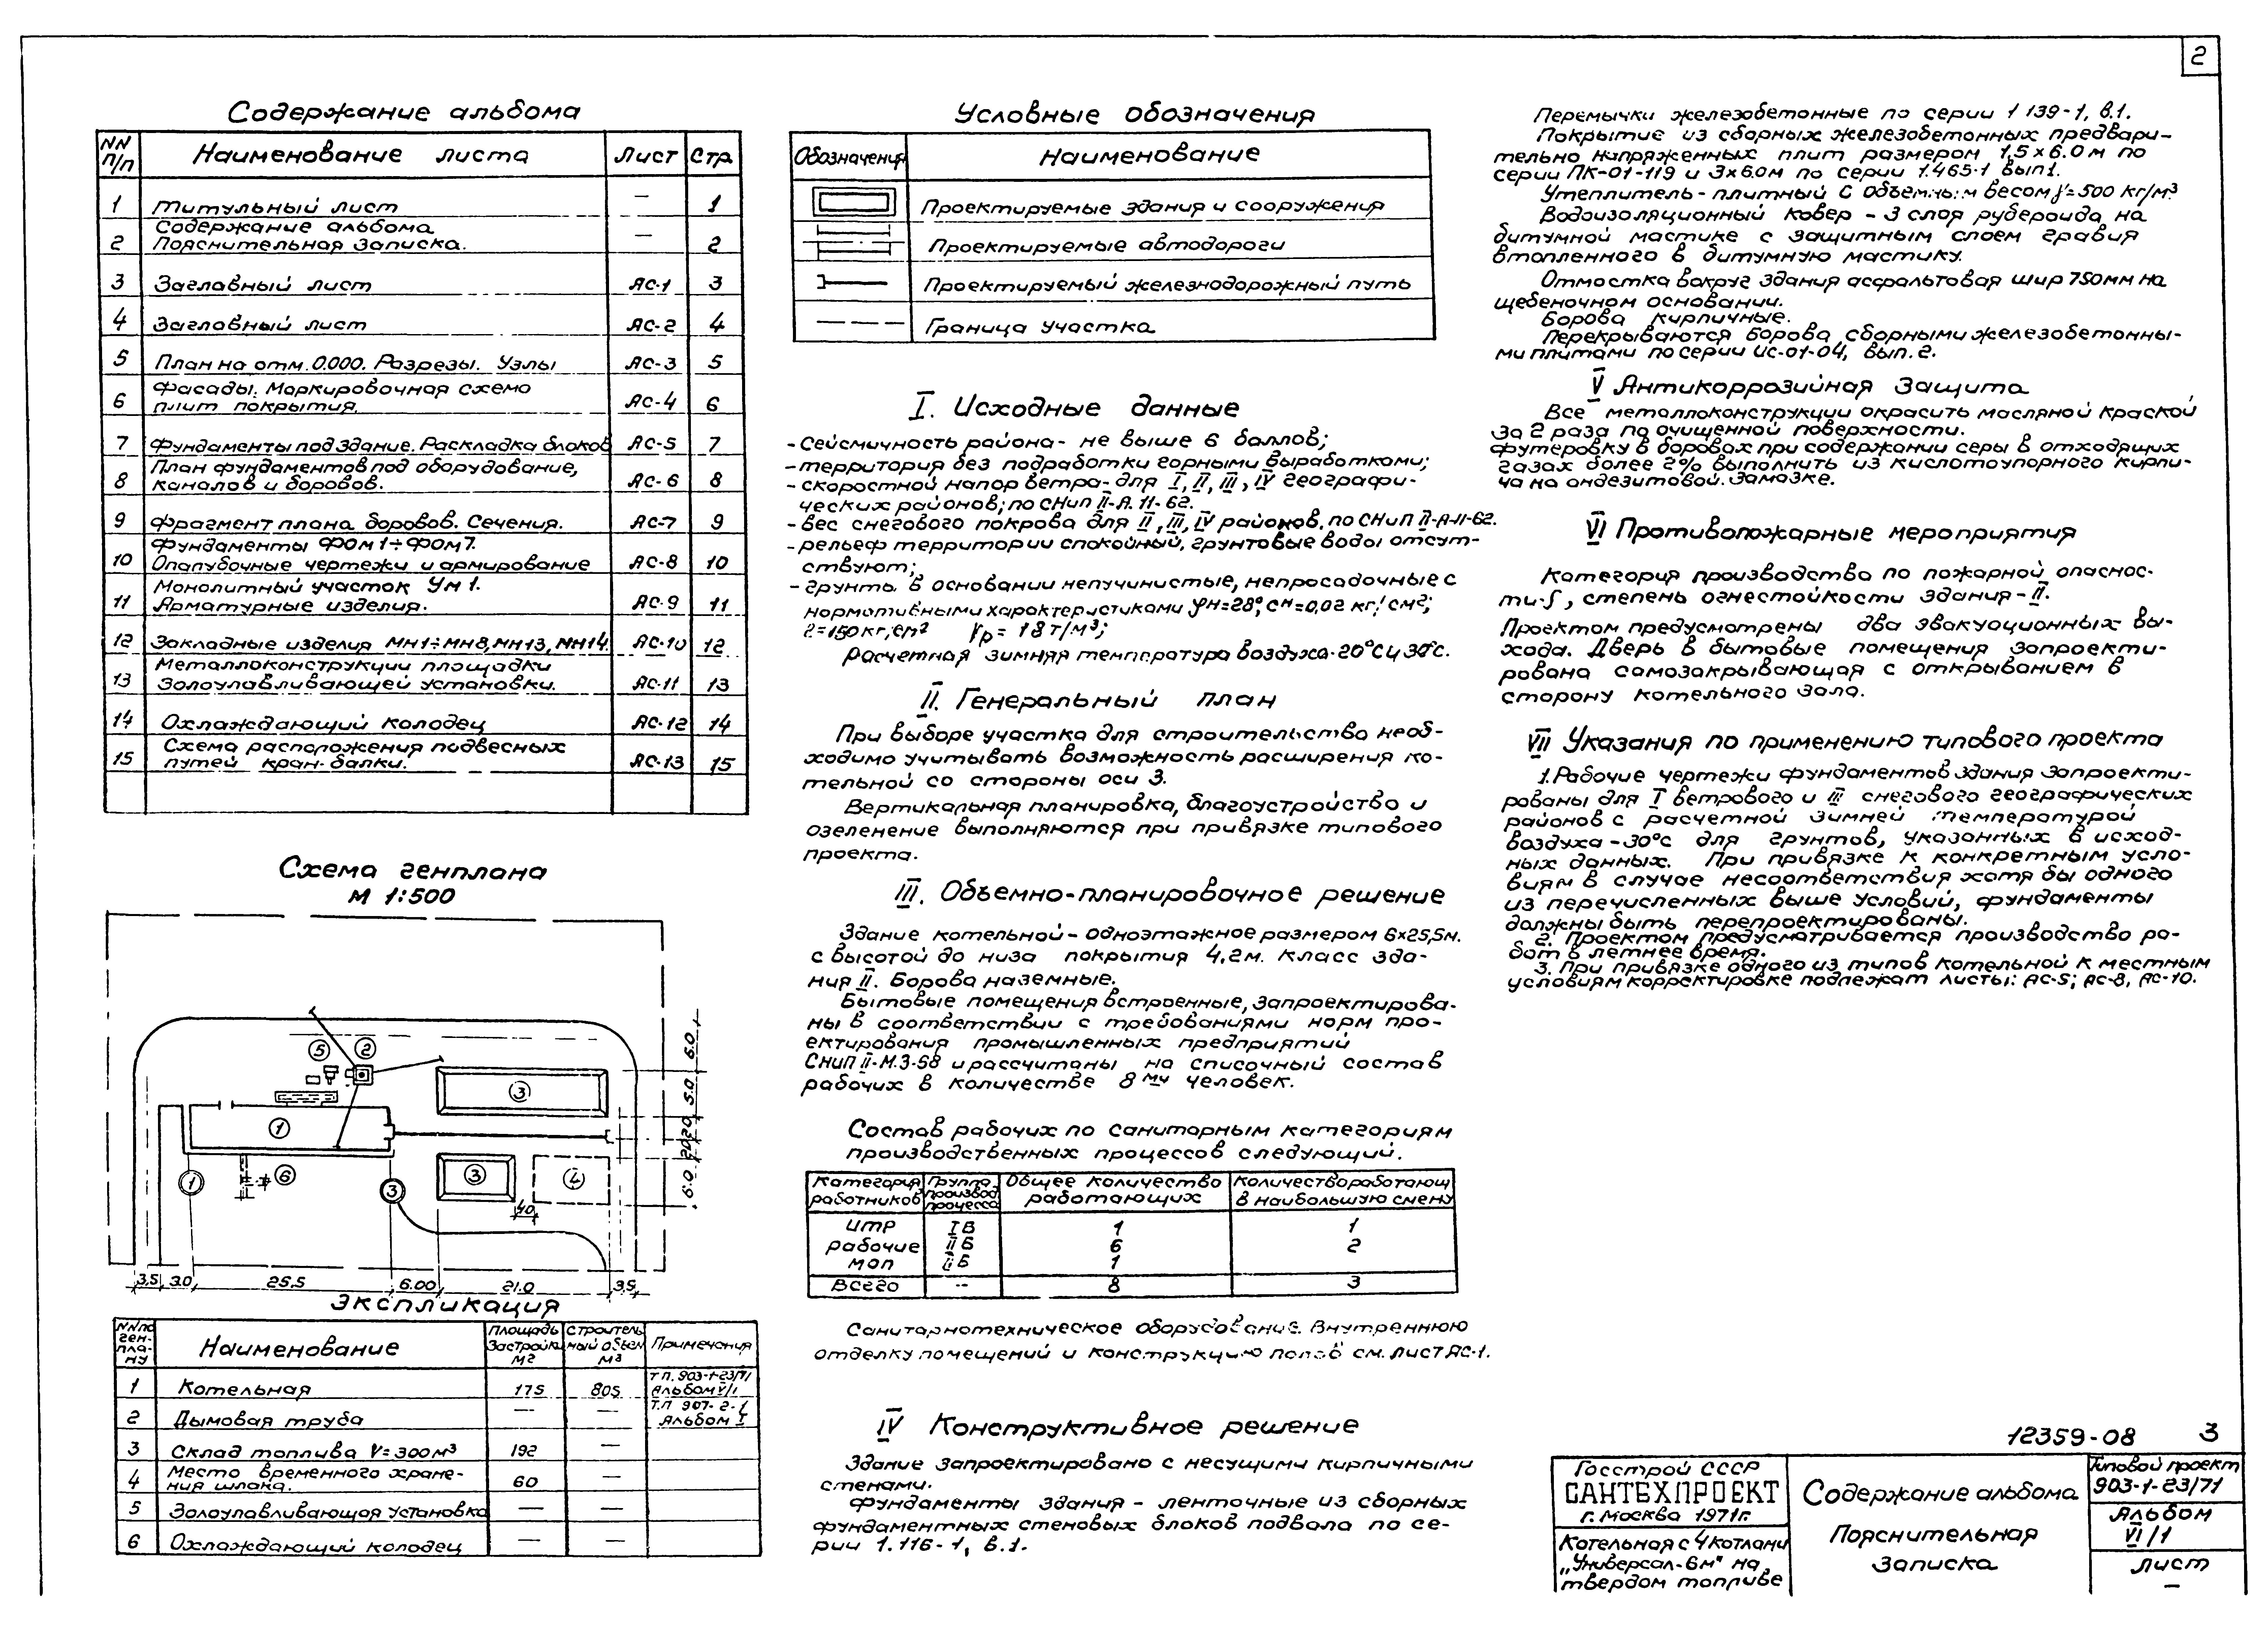 2
Содержание альбома
NN п/п Наименование листа Лист Стр.
1 Титульный лист — 1
Содержание альбома
2 Пояснительная записка. — 2
3 Заглавный лист АС-1 3
4 Заглавный лист АС-2 4
5 План на отм. 0.000. Разрезы. Узлы АС-3 5
Фасады. Маркировочная схема
6 плит покрытия. АС-4 6
7 Фундаменты под здание. Раскладка блоков АС-5 7
План фундаментов под оборудование,
8 каналов и боровов. АС-6 8
9 Фрагмент плана боровов. Сечения. АС-7 9
Фундаменты ФОм1÷ФОм7.
10 Опалубочные чертежи и армирование АС-8 10
Монолитный участок Ум1.
11 Арматурные изделия. АС-9 11
12 Закладные изделия МН1÷МН8, МН13, МН14. АС-10 12
Металлоконструкции площадки
13 Золоулавливающей установки. АС-11 13
14 Охлаждающий колодец АС-12 14
Схема расположения подвесных
15 путей кран-балки. АС-13 15
Схема генплана
М 1:500
5 2
3
1
1 6 3 3 4
6.0 5.0 2.0 2.0 6.0
4.0
3.5 3.0 25.5 6.00 21.0 3.5
Экспликация
NN по ген-пла-ну Наименование Площадь застройки м2 Строительный объем м3 Примечания
1 Котельная 175 805 Т.П. 903-1-23/71 Альбом VI/1
2 Дымовая труба — — Т.П 907-2-1 Альбом I
3 Склад топлива V=300м³ 192 —
Место временного хране-
4 ния шлака. 60 —
5 Золоулавливающая установка — —
6 Охлаждающий колодец — —
Условные обозначения
Обозначения Наименование
Проектируемые здания и сооружения
Проектируемые автодороги
Проектируемый железнодорожный путь
Граница участка
I. Исходные данные
- Сейсмичность района - не выше 6 баллов;
- территория без подработки горными выработками;
- скоростной напор ветра - для I, II, III, IV географи-
ческих районов; по СНиП II-А.11-62.
- вес снегового покрова для II, III, IV районов. по СНиП II-А-11-62.
- рельеф территории спокойный, грунтовые воды отсут-
ствуют;
- грунты в основании непучинистые, непросадочные с
нормативными характеристиками φн=28°, сн=0,02 кг/см2;
=150кг/см2 γр = 1 8 т/м³;
расчетная зимняя температура воздуха -20°С и 30°С.
II. Генеральный план
При выборе участка для строительства необ-
ходимо учитывать возможность расширения ко-
тельной со стороны оси 3.
Вертикальная планировка, благоустройство и
озеленение выполняются при привязке типового
проекта.
III. Объемно-планировочное решение
Здание котельной - одноэтажное размером 6×25,5м.
с высотой до низа покрытия 4,2м. Класс зда-
ния II. Борова наземные.
Бытовые помещения встроенные, запроектирова-
ны в соответствии с требованиями норм про-
ектирования промышленных предприятий
СНиП II-М.3-68 и рассчитаны на списочный состав
рабочих в количестве 8ми человек.
Состав рабочих по санитарным категориям
производственных процессов следующий.
Категория работников Группа производ процесса Общее количество работающих Количество работающ в наибольшую смену
ИТР I В 1 1
рабочие II Б 6 2
МОП II Б 1
Всего -- 8 3
Санитарнотехническое оборудование. Внутреннюю
отделку помещений и конструкцию полов см. лист АС-1.
IV Конструктивное решение
Здание запроектировано с несущими кирпичными
стенами.
Фундаменты здания - ленточные из сборных
фундаментных стеновых блоков подвала по се-
рии 1.116-1, в.1.
Перемычки железобетонные по серии 1 139-1, в.1.
Покрытие из сборных железобетонных предвари-
тельно напряженных плит размером 1,5×6.0м по
серии ПК-01-119 и 3×6.0м по серии 1.465-1 вып1.
Утеплитель - плитный с объемным весом γ=500 кг/м³
Водоизоляционный ковер - 3 слоя рубероида на
битумной мастике с защитным слоем гравия
втопленного в битумную мастику.
Отмостка вокруг здания асфальтовая шир 750мм на
щебеночном основании.
Борова кирпичные.
Перекрываются борова сборными железобетонны-
ми плитами по серии ИС-01-04, вып. 2.
V Антикоррозийная защита
Все металлоконструкции окрасить масляной краской
за 2 раза по очищенной поверхности.
футеровку в боровах при содержании серы в отходящих
газах более 2% выполнить из кислотоупорного кирпи-
ча на андезитовой замазке.
VI Противопожарные мероприятия
Категория производства по пожарной опаснос-
ти-Г, степень огнестойкости здания - II.
Проектом предусмотрены два эвакуационных вы-
хода. Дверь в бытовые помещения запроекти-
рована самозакрывающая с открыванием в
сторону котельного зала.
VII Указания по применению типового проекта
1. Рабочие чертежи фундаментов здания запроекти-
рованы для I ветрового и III снегового географических
районов с расчетной зимней температурой
воздуха -30°С для грунтов, указанных в исход-
ных данных. При привязке к конкретным усло-
виям в случае несоответствия хотя бы одного
из перечисленных выше условий, фундаменты
должны быть перепроектированы.
2. Проектом предусматривается производство ра-
бот в летнее время.
3. При привязке одного из типов котельной к местным
условиям корректировке подлежат листы: АС-5; АС-8, АС-10.
12359-08 3
Госстрой СССР
САНТЕХПРОЕКТ
г. Москва 1971г.
Котельная с 4 котлами
„Универсал-6м" на
твердом топливе
Содержание альбома
Пояснительная
записка
Типовой проект
903-1-23/71
Альбом
VI/1
Лист
—